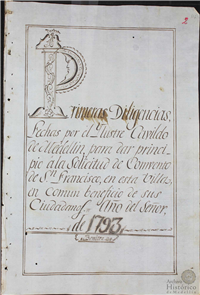 2
Primeras Diligencias,
Fechas por el Ilustre Cavildo
de Medellin, para dar princi-
pio a la Solicitud de Convento
de Sn. Francisco, en esta Villa,
en comun beneficio de sus
Ciudadanos. Año del Señor,
de 1793
Archivo
Histórico